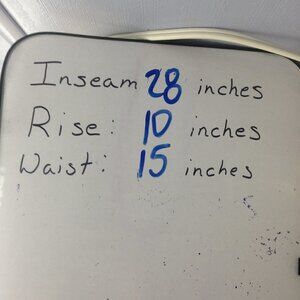 Inseam 28 inches
Rise: 10 inches
Waist: 15 inches